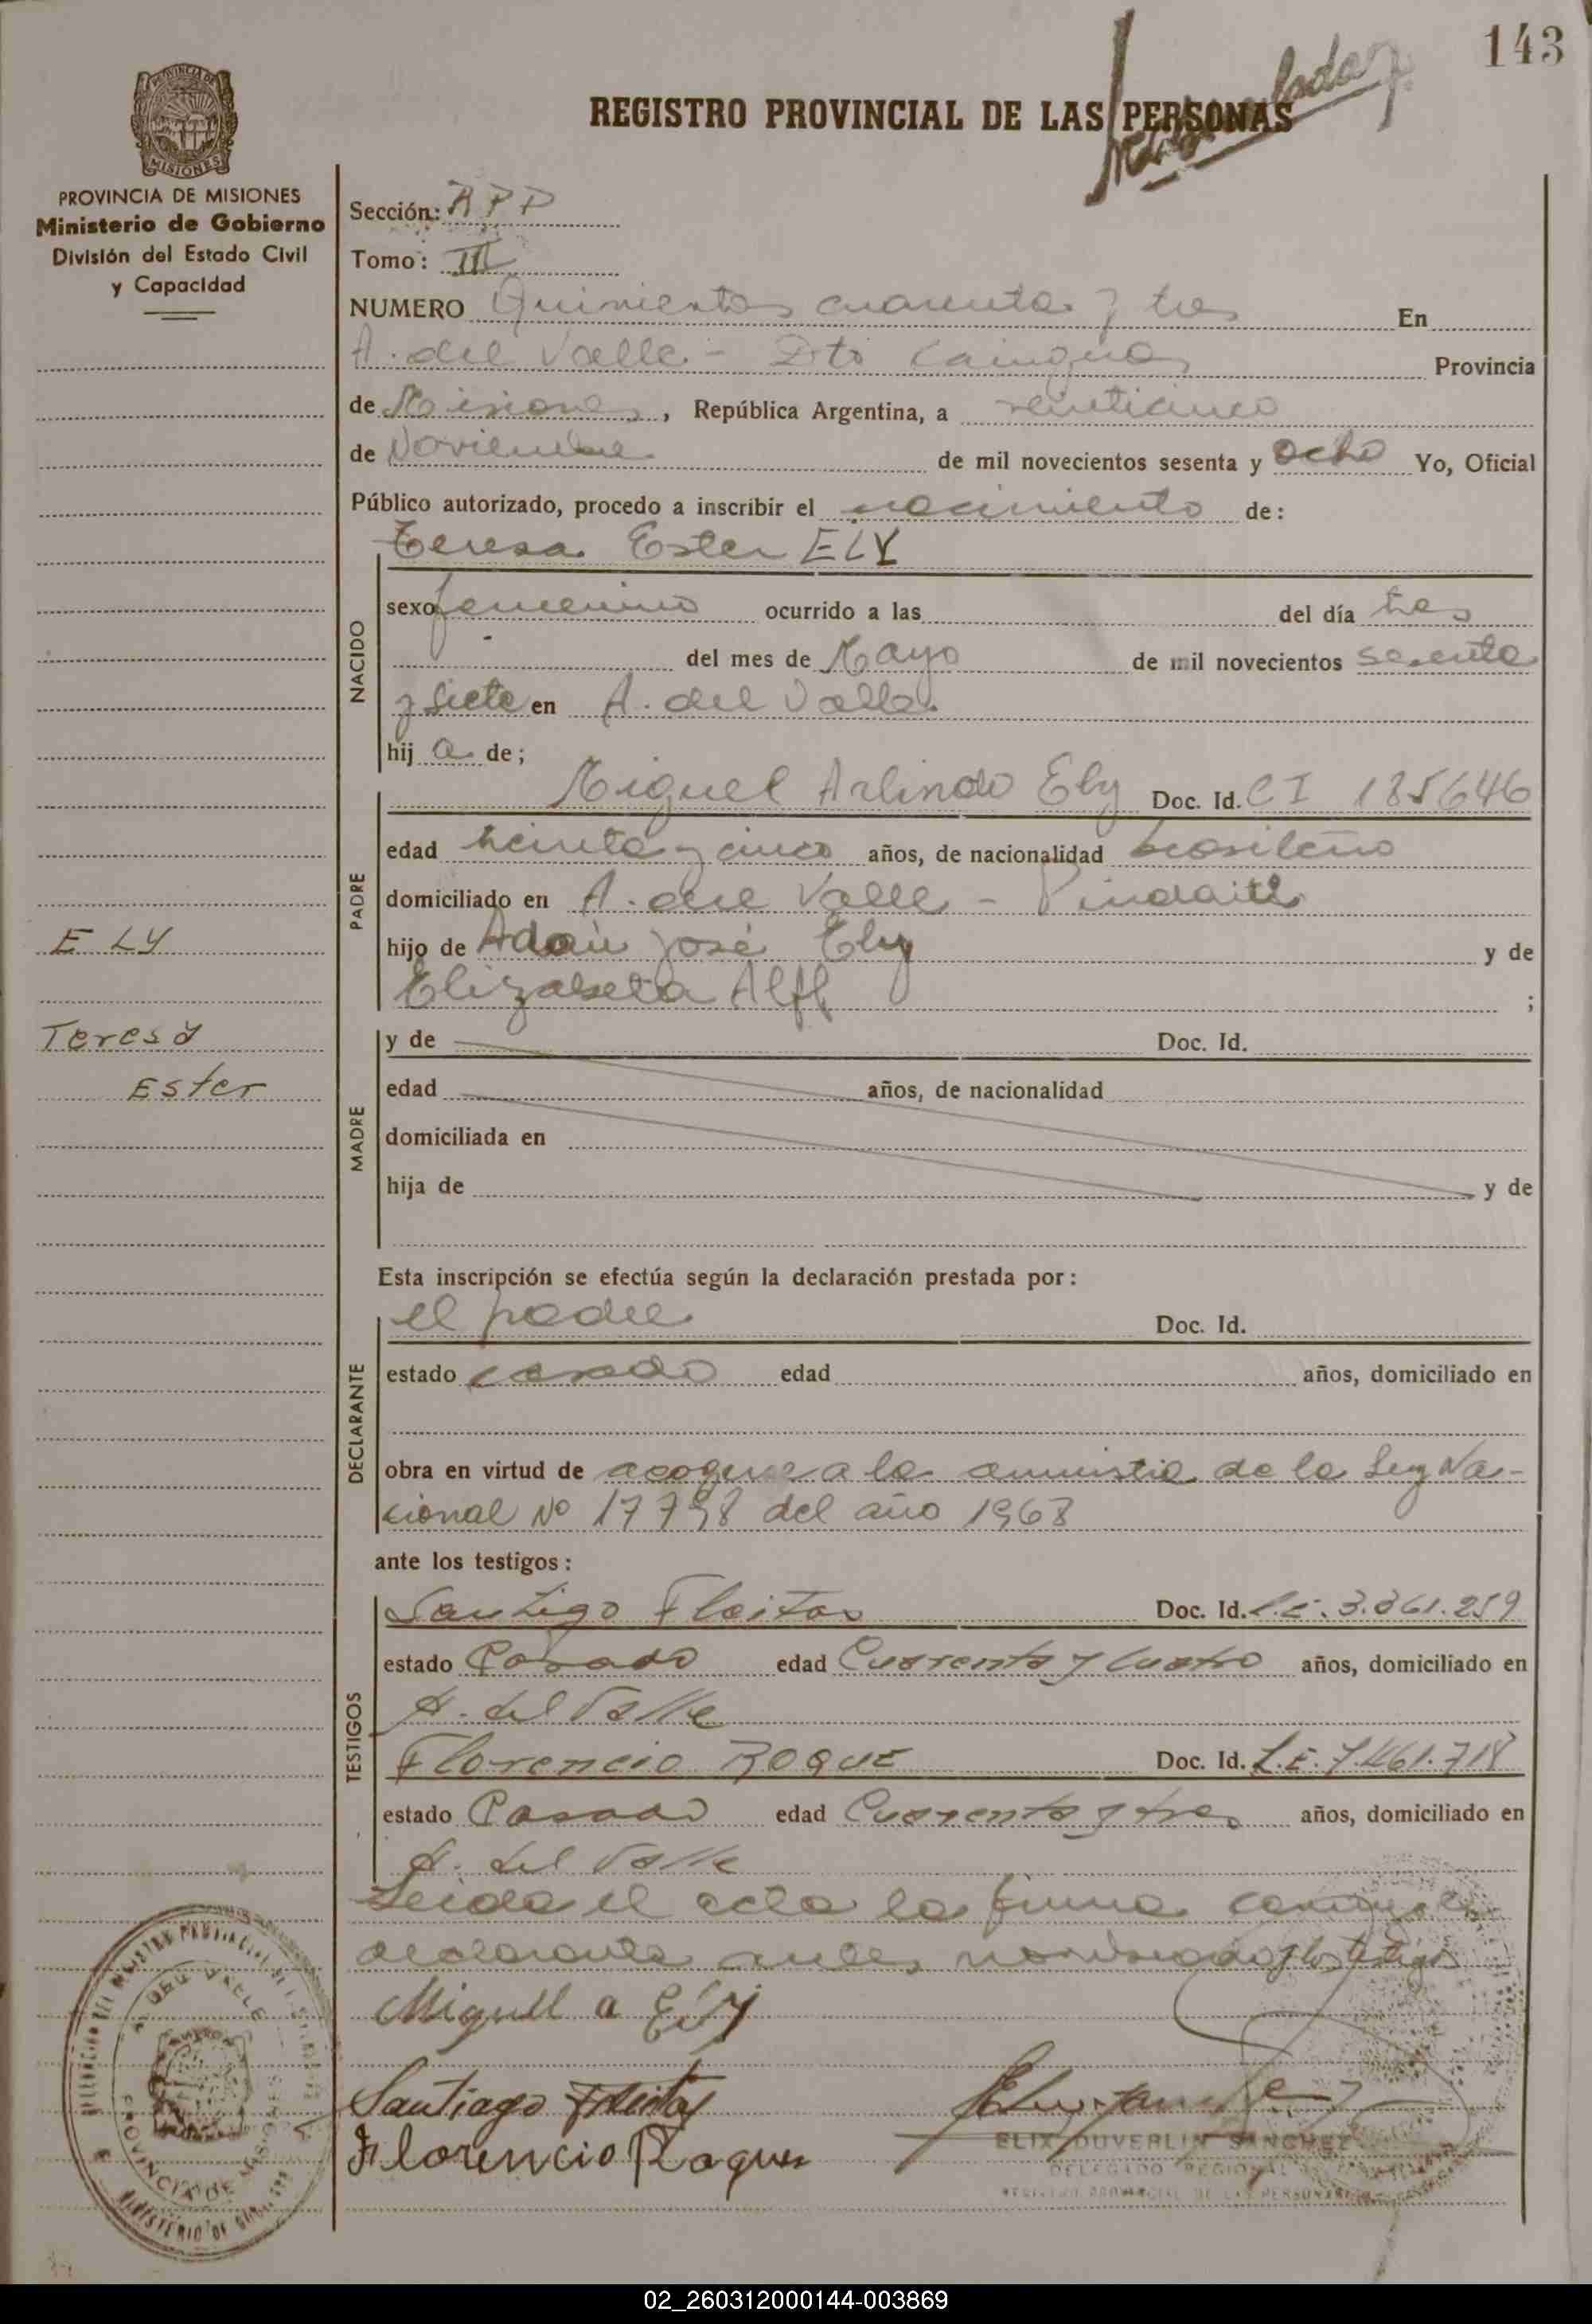 143
REGISTRO PROVINCIAL DE LAS PERSONAS
PROVINCIA DE MISIONES
Ministerio de Gobierno
División del Estado Civil
y Capacidad
Sección:
Tomo: III
NUMERO Quinientos cuarenta y tres En
A. del Valle - Dto Cainguas Provincia
de Misiones, República Argentina, a veinticinco
de Noviembre de mil novecientos sesenta y ocho Yo, Oficial
Público autorizado, procedo a inscribir el nacimiento de:
Teresa Ester ELY
NACIDO
sexo femenino ocurrido a las del día tres
del mes de Mayo de mil novecientos sesenta
y siete en A. del Valle
hij a de;
PADRE
Miguel Arlindo Ely Doc. Id. CI 185646
edad treinta y cinco años, de nacionalidad brasileño
domiciliado en A. del Valle - Pindaiti
hijo de Adan José Ely y de
Elizabeta Alff ;
ELY
Teresa
Ester
MADRE
y de Doc. Id.
edad años, de nacionalidad
domiciliada en
hija de y de
Esta inscripción se efectúa según la declaración prestada por:
DECLARANTE
el padre Doc. Id.
estado casado edad años, domiciliado en
obra en virtud de acogerse a la amnistia de la Ley Na-
cional Nº 17798 del año 1968
ante los testigos:
TESTIGOS
Santigo Fleitas Doc. Id. L.E. 3.861.259
estado Casado edad Cuarenta y cuatro años, domiciliado en
A. del Valle
Florencio ROQUE Doc. Id. L.E. 7.461.718
estado Casado edad Cuarenta y tres años, domiciliado en
A. del Valle
Leida el acta la firma conmigo el
declarante antes nombrado y los testigos
Miguel a Ely
Santiago Fleitas
Florencio Roque
ELIX DUVERLIN SANCHEZ
DELEGADO REGIONAL
REGISTRO PROVINCIAL DE LAS PERSONAS
A. DEL VALLE
PROVINCIA DE MISIONES
02_260312000144-003869